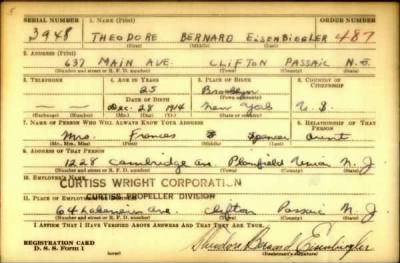 SERIAL NUMBER 1. NAME (Print) ORDER NUMBER
3948 THEODORE BERNARD EISENBIEGLER 487
(First) (Middle) (Last)
2. ADDRESS (Print)
637 MAIN AVE. CLIFTON PASSAIC N.J.
(Number and street or R. F. D. number) (Town) (County) (State)
3. TELEPHONE 4. AGE IN YEARS 5. PLACE OF BIRTH 6. COUNTRY OF CITIZENSHIP
25 Brooklyn
DATE OF BIRTH (Town or county)
Dec. 28 1914 New York U. S.
(Exchange) (No.) (Mo.) (Day) (Yr.) (State or country)
7. NAME OF PERSON WHO WILL ALWAYS KNOW YOUR ADDRESS 8. RELATIONSHIP OF THAT PERSON
Mrs. Frances Spencer Aunt
(Mr., Mrs., Miss) (First) (Middle) (Last)
9. ADDRESS OF THAT PERSON
1228 Cambridge Ave. Plainfield Union N. J.
(Number and street or R. F. D. number) (Town) (County) (State)
10. EMPLOYER'S NAME
CURTISS WRIGHT CORPORATION
CURTISS PROPELLER DIVISION
11. PLACE OF EMPLOYMENT OR BUSINESS
64 Ave. Clifton Passaic N. J.
(Number and street or R. F. D. number) (Town) (County) (State)
I AFFIRM THAT I HAVE VERIFIED ABOVE ANSWERS AND THAT THEY ARE TRUE.
REGISTRATION CARD
D. S. S. Form 1 Theodore Bernard Eisenbiegler
(over) (Registrant's signature)